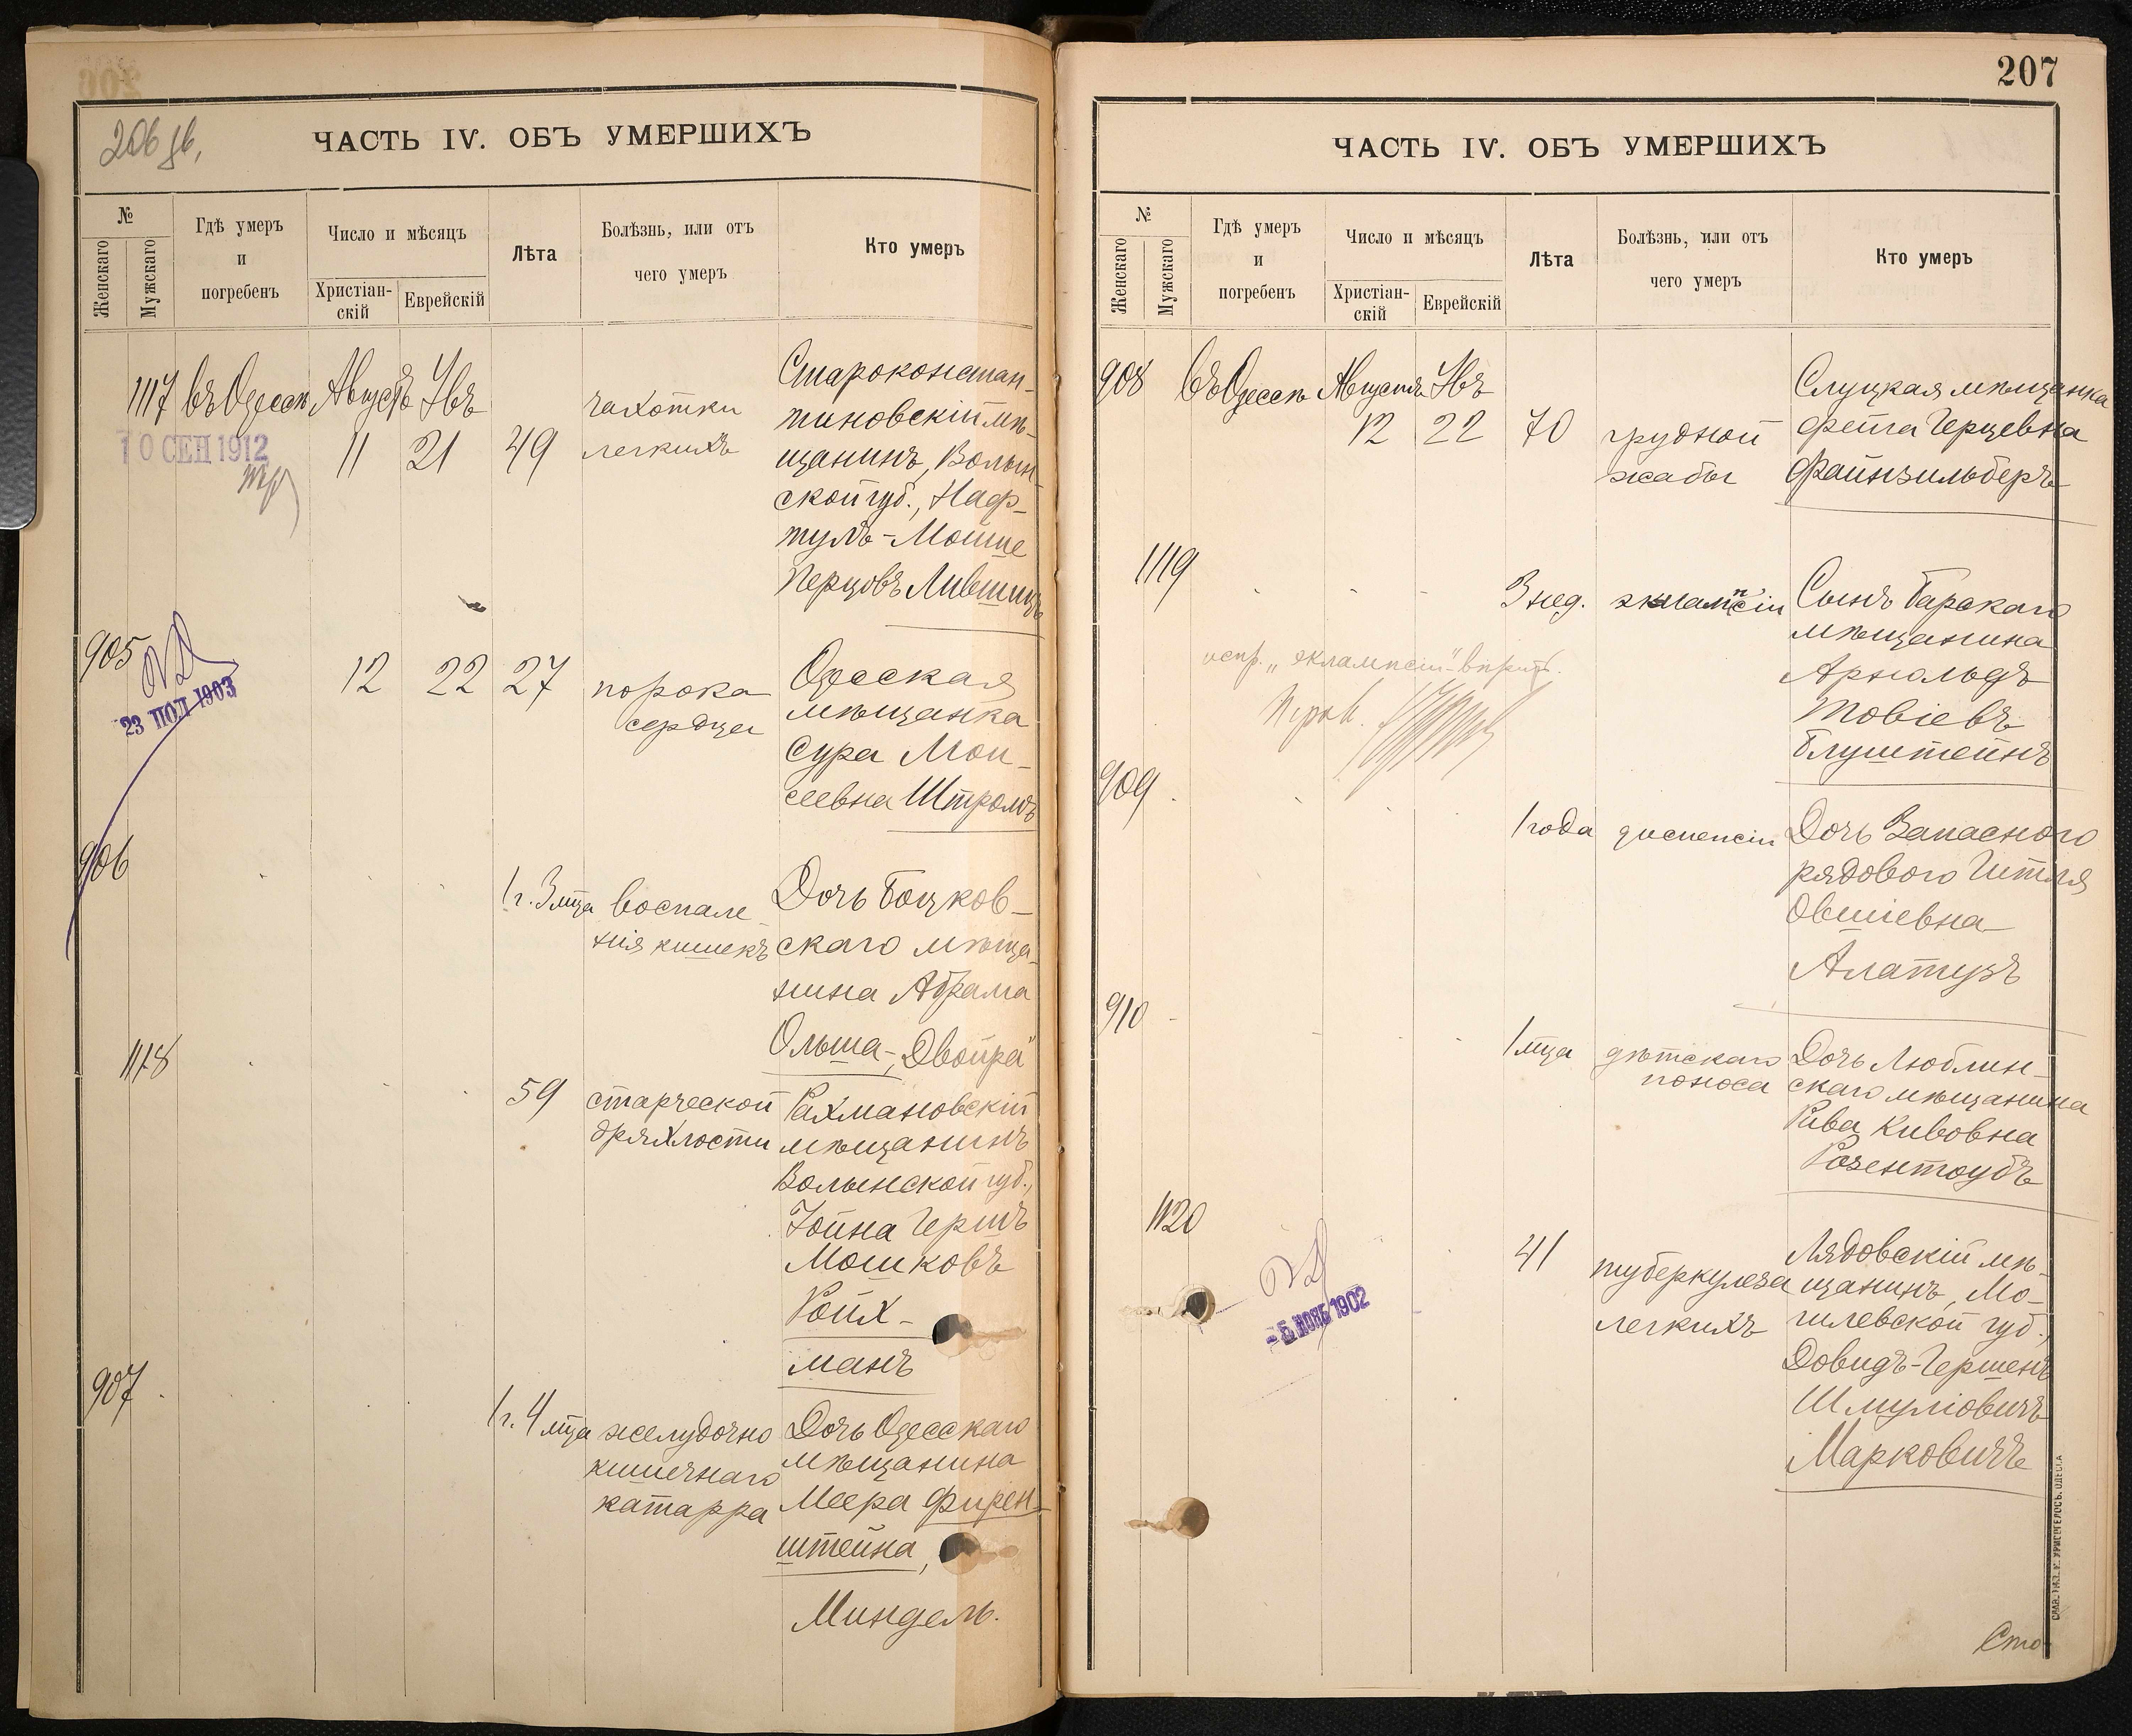 206 об.
ЧАСТЬ IV. ОБЪ УМЕРШИХЪ
№
Женскаго
Мужскаго
Гдѣ умеръ
и
погребенъ
Число и мѣсяцъ
Христіан-
скій
Еврейскій
Лѣта
Болѣзнь, или отъ
чего умеръ
Кто умеръ
1117 въ Одессѣ Августъ Увъ
11 21 49
чахотки
легкихъ
Староконстан-
тиновскій мѣ-
щанинъ, Волын-
ской губ., Наф-
тулъ-Мошие
Перцовъ Лившицъ
10 СЕН 1912
905 12 22 27
порока
сердца
Одесская
мѣщанка
Сура Мои-
сеевна Штромъ
23 1903
906 1 г. 3 мѣа
воспале-
нія кишекъ
Дочь Боцков-
скаго мѣща-
нина Абрама
Ольша-„Двойра"
1118 59
старческой
дряхлости
Рахмановскій
мѣщанинъ
Волынской губ.,
Іойна Гершъ
Мошковъ
Ройх-
манъ
907 1 г. 4 мѣа
желудочно
кишечнаго
катарра
Дочь Одесскаго
мѣщанина
Меера Фирен-
штейна,
Миндель.
207
ЧАСТЬ IV. ОБЪ УМЕРШИХЪ
№
Женскаго
Мужскаго
Гдѣ умеръ
и
погребенъ
Число и мѣсяцъ
Христіан-
скій
Еврейскій
Лѣта
Болѣзнь, или отъ
чего умеръ
Кто умеръ
908 въ Одессѣ Августъ Увъ
12 22 70
грудной
жабы
Слуцкая мѣщанка
Фейга Герцевна
Файнзильберъ
1119 3 нед. эклампсіи
Сынъ Барскаго
мѣщанина
Арнольдъ
Товіевъ
Блуштейнъ
испр. „эклампсіи"
909 1 года диспепсіи
Дочь Запаснаго
рядового Гитля
Овшіевна
Алатузъ
910 1 мѣа
дѣтскаго
поноса
Дочь Люблин-
скаго мѣщанина
Рива Кивовна
Розентоубъ
1120 41
туберкулеза
легкихъ
Лядовскій мѣ-
щанинъ, Мо-
гилевской губ.,
Довидъ-Гершенъ
Шмуліовичъ
Марковичъ
-5 НОЯБ 1902
Сто